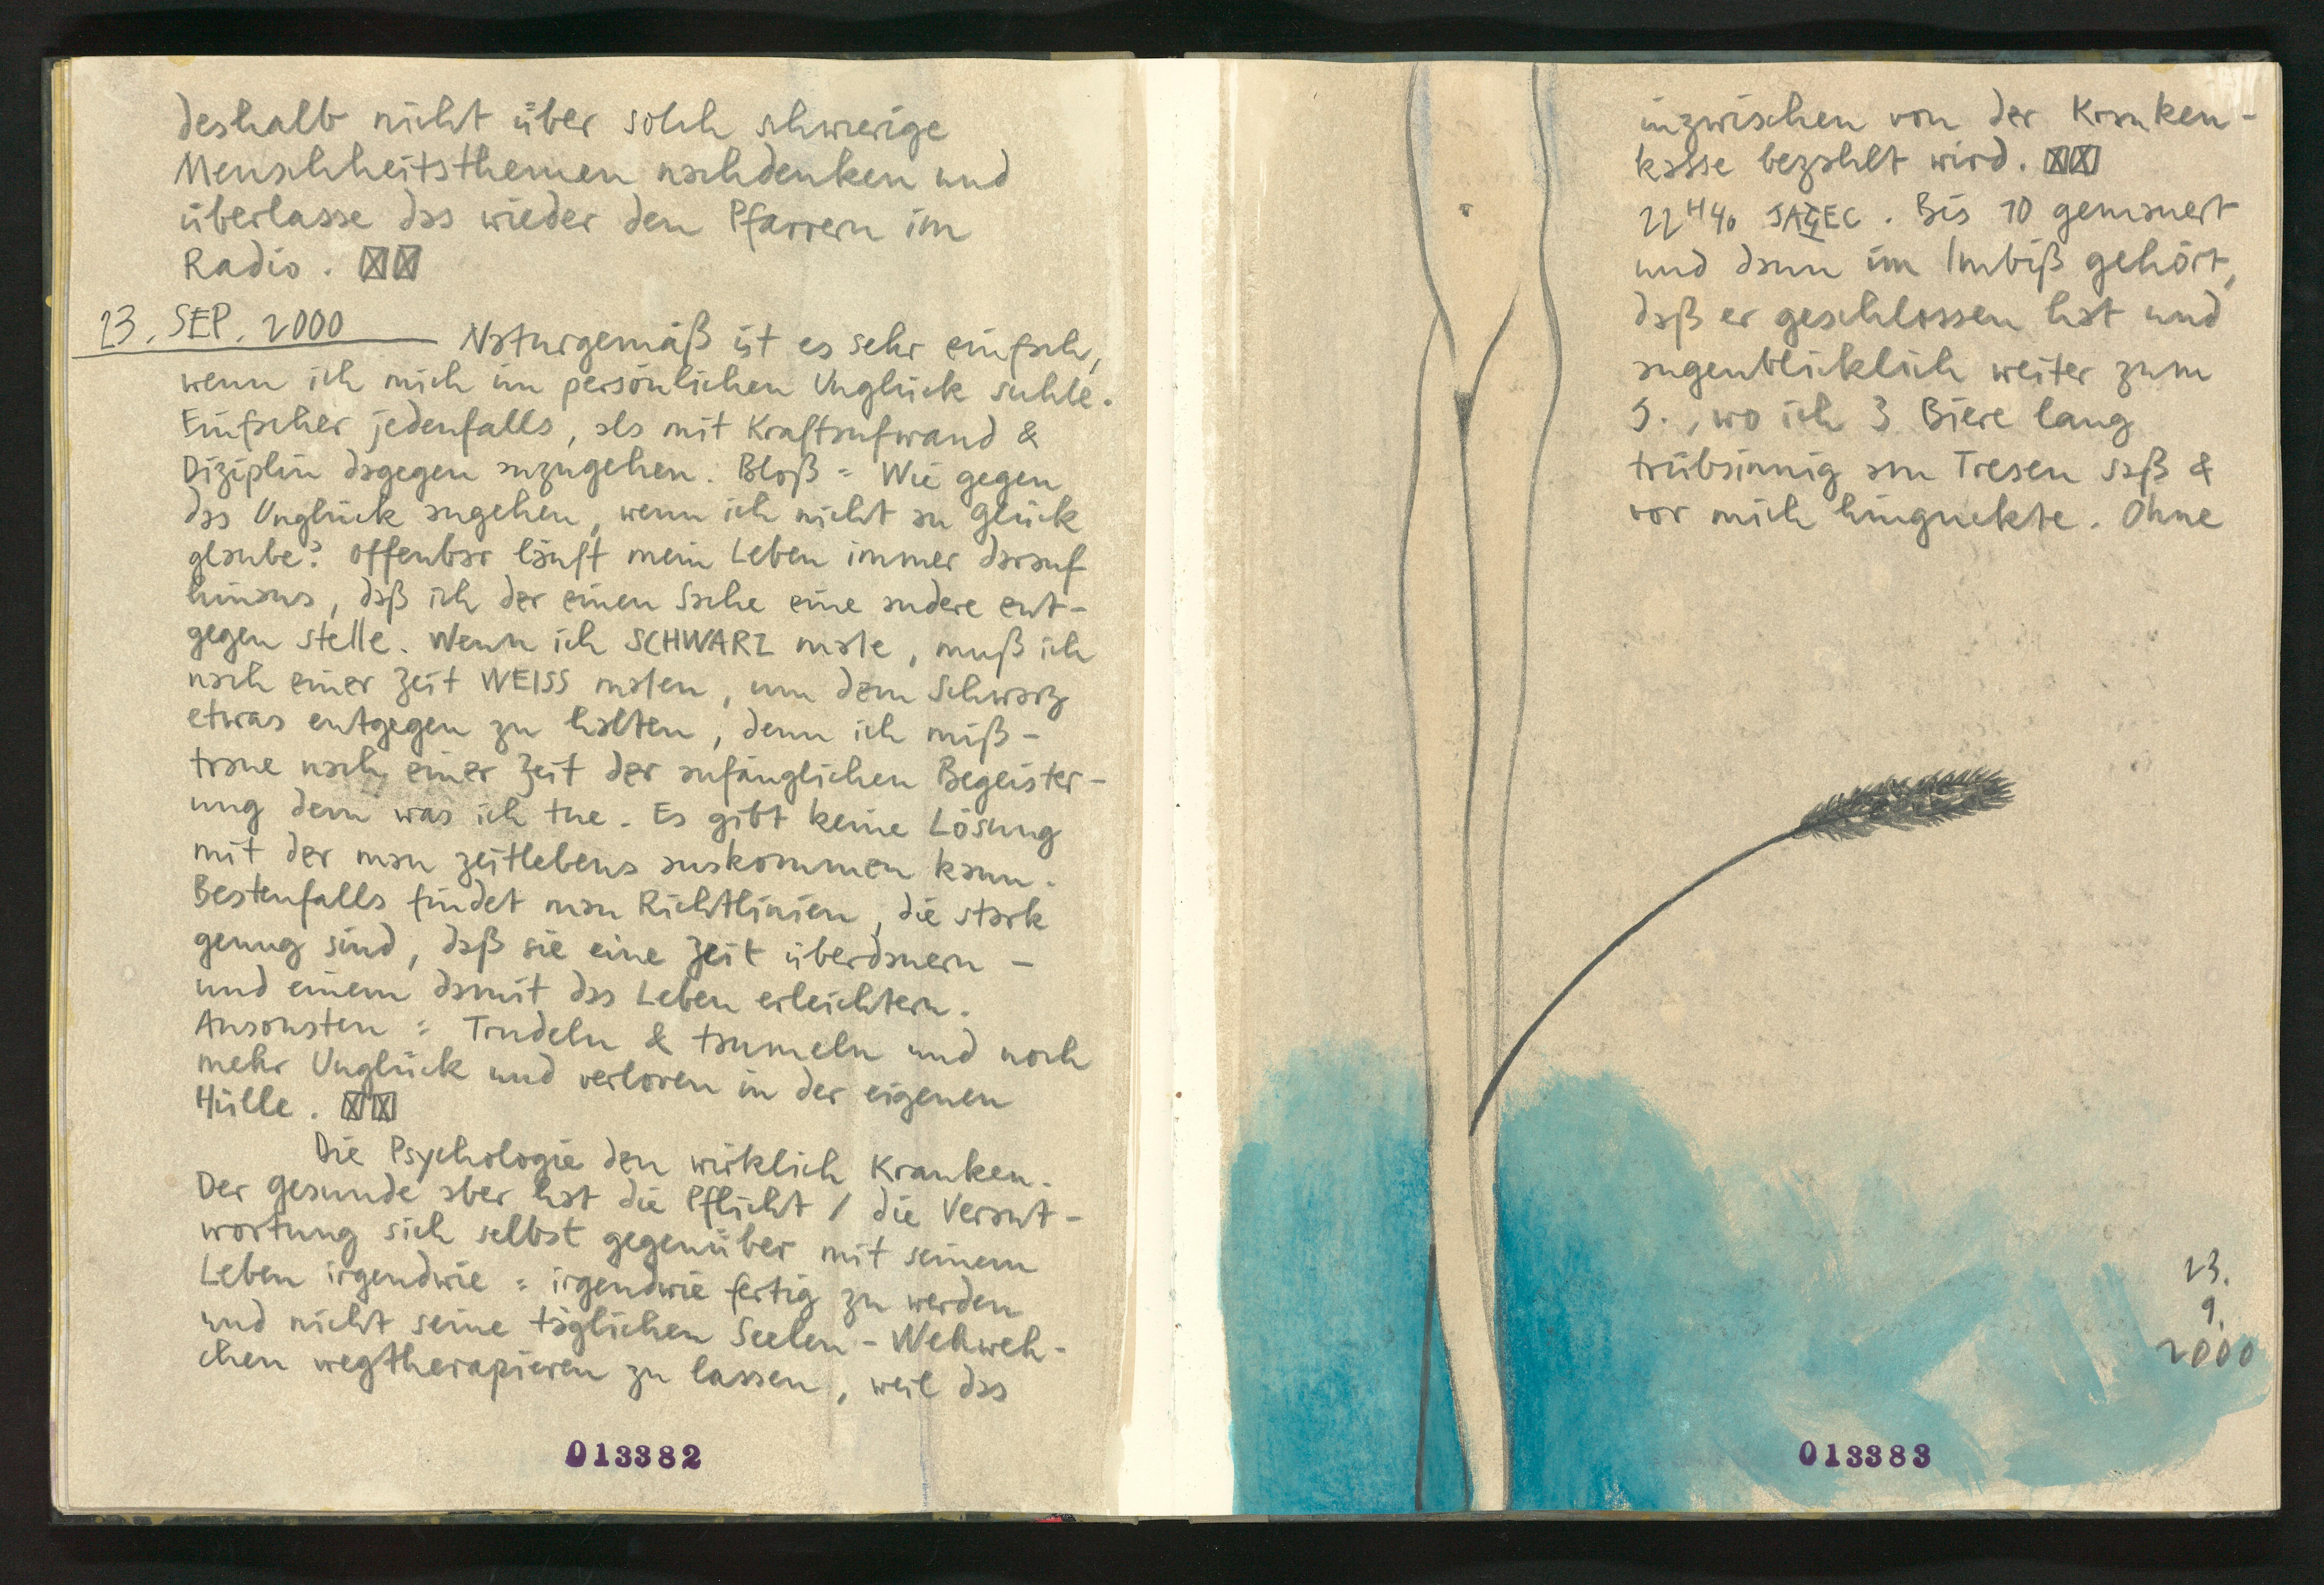 deshalb nicht über solch schwierige
Menschheitsthemen nachdenken und
überlasse das wieder den Pfarrern im
Radio.
13. SEP. 2000 Naturgemäß ist es sehr einfach,
wenn ich mich im persönlichen Unglück suhle.
Einfacher jedenfalls, als mit Kraftaufwand &
Diziplin dagegen anzugehen. Bloß = Wie gegen
das Unglück angehen, wenn ich nicht an Glück
glaube? Offenbar läuft mein Leben immer darauf
hinaus, daß ich der einen Sache eine andere ent-
gegen stelle. Wenn ich SCHWARZ male, muß ich
nach einer Zeit WEISS malen, um dem Schwarz
etwas entgegen zu halten, denn ich miß-
traue nach einer Zeit der anfänglichen Begeister-
ung dem was ich tue. Es gibt keine Lösung
mit der man zeitlebens auskommen kann.
Bestenfalls findet man Richtlinien, die stark
genug sind, daß sie eine Zeit überdauern -
und einem damit das Leben erleichtern.
Ansonsten = Trudeln & taumeln und noch
mehr Unglück und verloren in der eigenen
Hülle.
Die Psychologie den wirklich Kranken.
Der Gesunde aber hat die Pflicht / die Verant-
wortung sich selbst gegenüber mit seinem
Leben irgendwie = irgendwie fertig zu werden
und nicht seine täglichen Seelen-Wehweh-
chen wegtherapieren zu lassen, weil das
013382
inzwischen von der Kranken-
kasse bezahlt wird.
22H40 . Bis 10 gemauert
und dann im Imbiß gehört,
daß er geschlossen hat und
augenblicklich weiter zum
S., wo ich 3 Biere lang
trübsinnig am Tresen saß &
vor mich hinguckte. Ohne
13.
9.
2000
013383